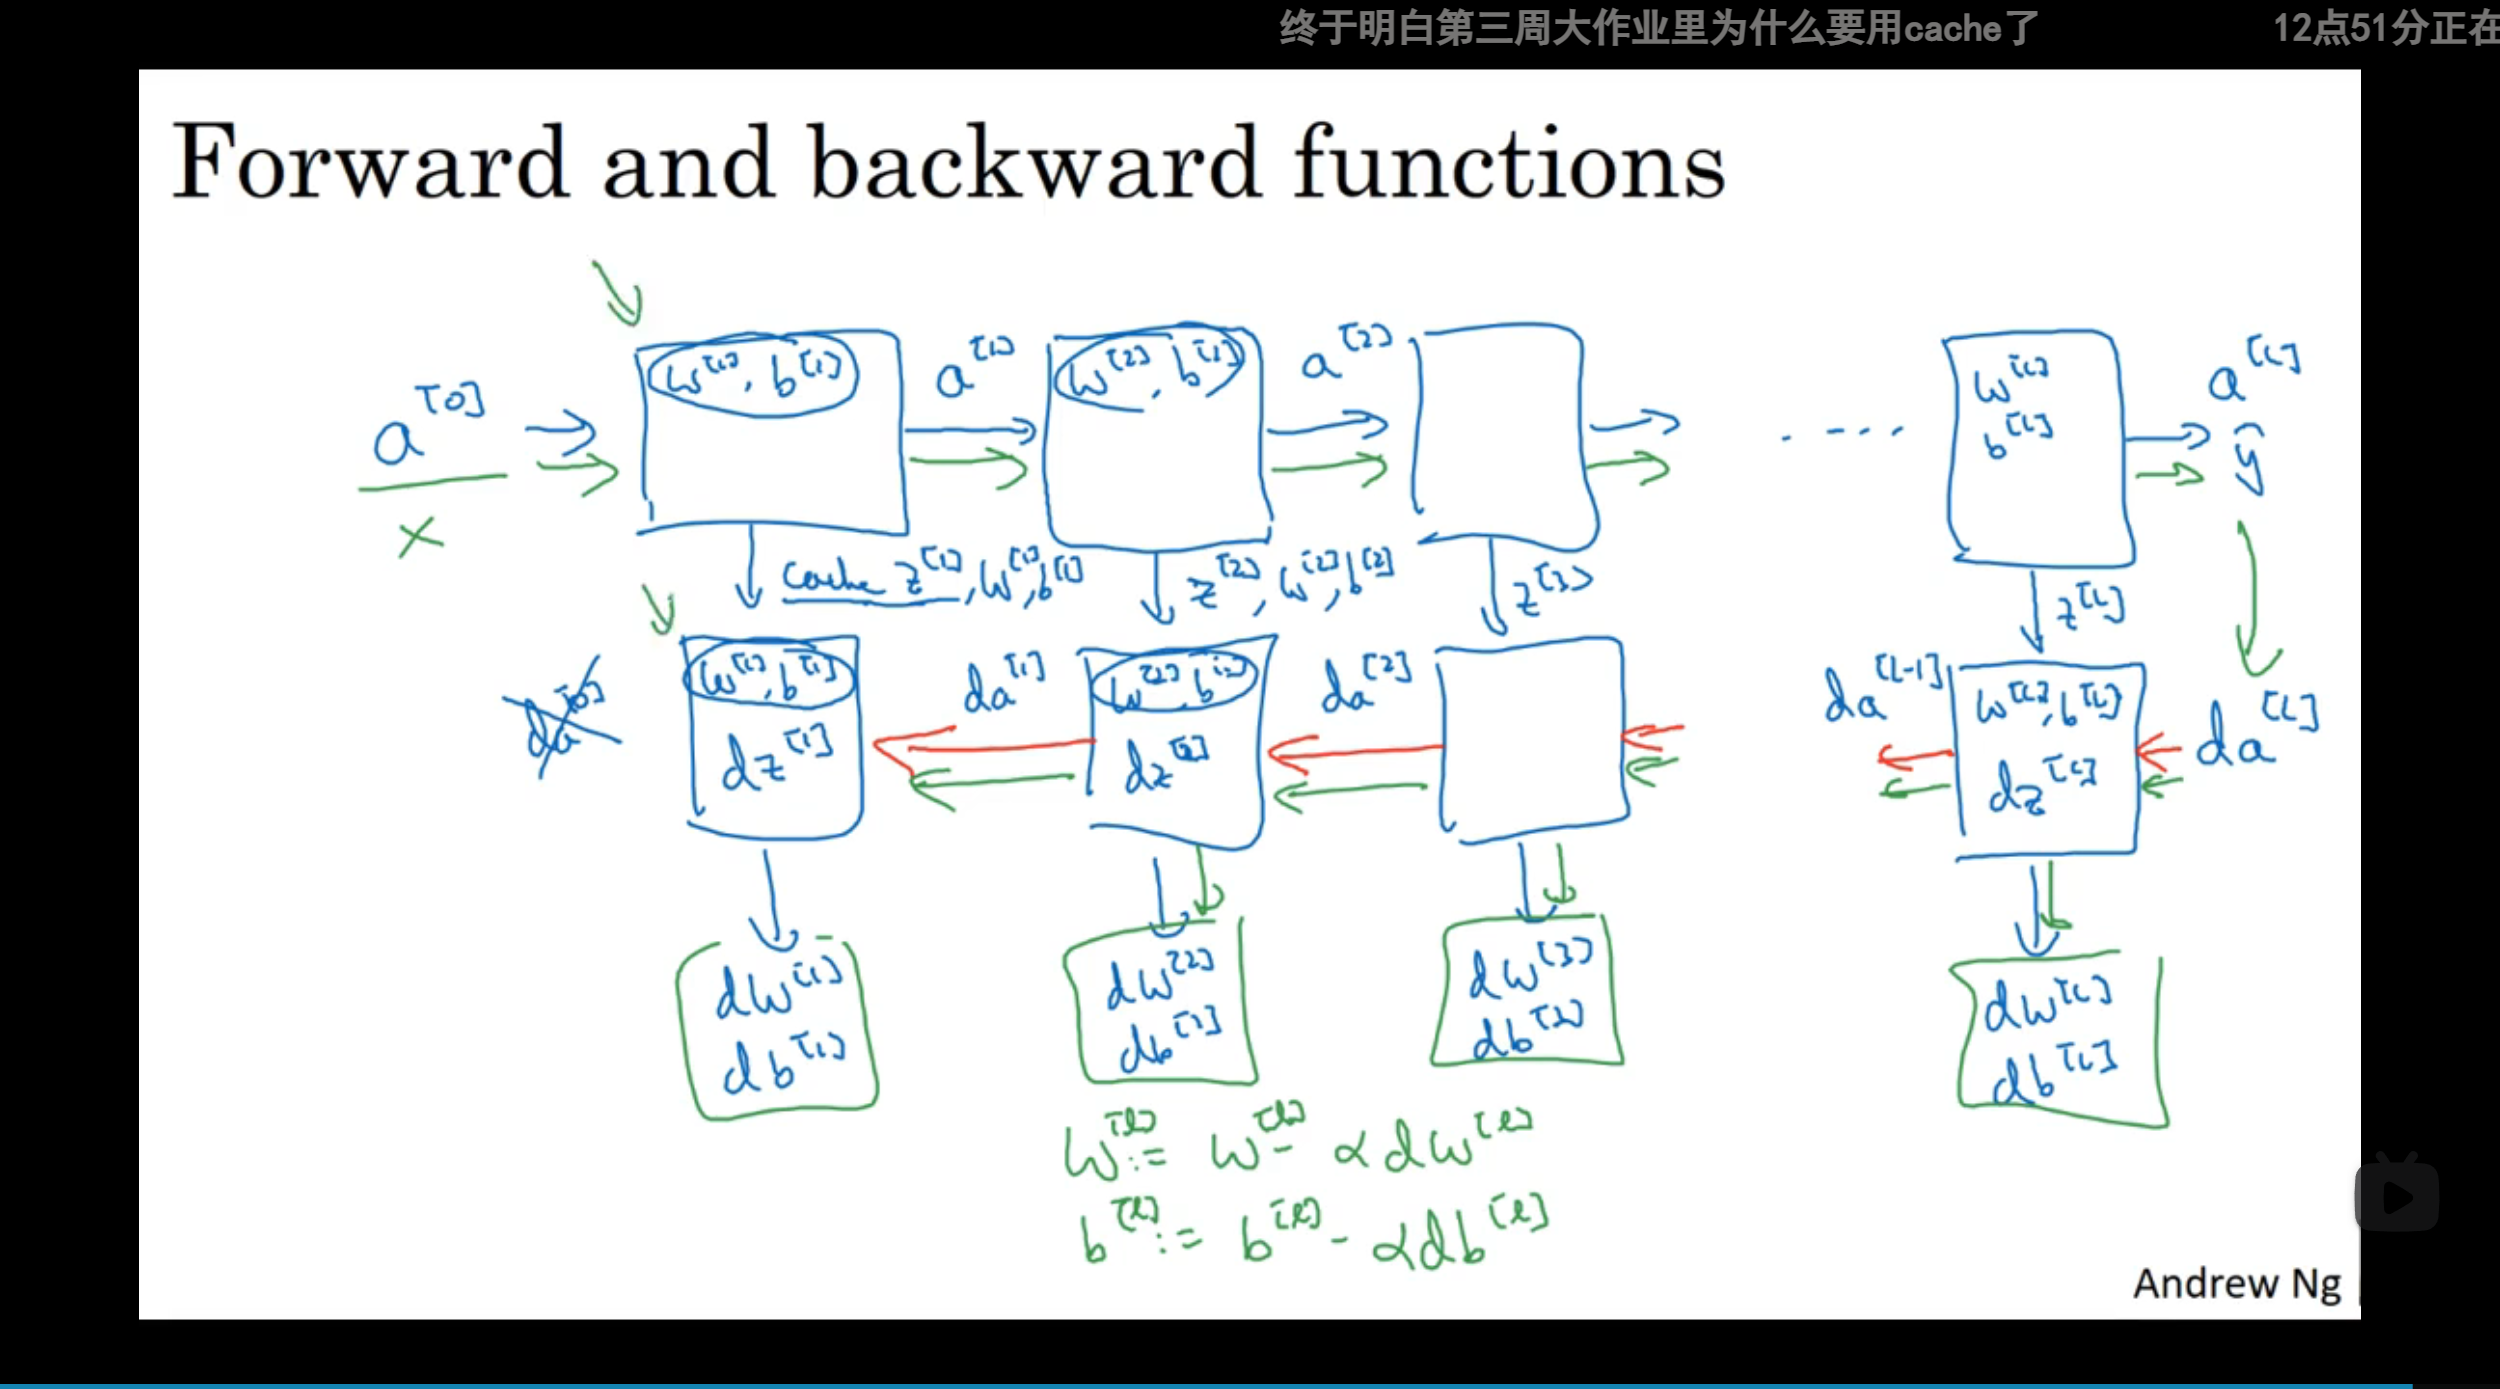 终于明白第三周大作业里为什么要用cache了 12点51分正在
Forward and backward functions
a^[0] w^[1], b^[1] a^[1] w^[2], b^[2] a^[2] w^[L] a^[L]
x b^[L] ŷ
cache z^[1], w^[1], b^[1] z^[2], w^[2], b^[2] z^[3] z^[L]
da^[0] w^[1], b^[1] da^[1] w^[2], b^[2] da^[2] da^[L-1] w^[L], b^[L] da^[L]
dz^[1] dz^[2] dz^[L]
dw^[1] dw^[2] dw^[3] dw^[L]
db^[1] db^[2] db^[3] db^[L]
w^[l] := w^[l] - αdw^[l]
b^[l] := b^[l] - αdb^[l]
Andrew Ng